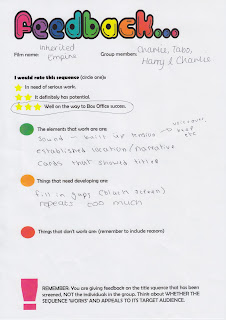 feedback...
Film name: Inherited Empire
Group members: Charlie, Tabo, Harry & Charlie
I would rate this sequence (circle one):
In need of serious work.
It definitely has potential.
Well on the way to Box Office success.
The elements that work are are:
sound - built up tension → voice over, beep etc
established location/narrative
cards that showed titles
Things that need developing are:
fill in gaps (black screen)
repeats too much
Things that don't work are: (remember to include reasons)
REMEMBER: You are giving feedback on the title squence that has been
screened, NOT the individuals in the group. Think about WHETHER THE
SEQUENCE 'WORKS' AND APPEALS TO ITS TARGET AUDIENCE.